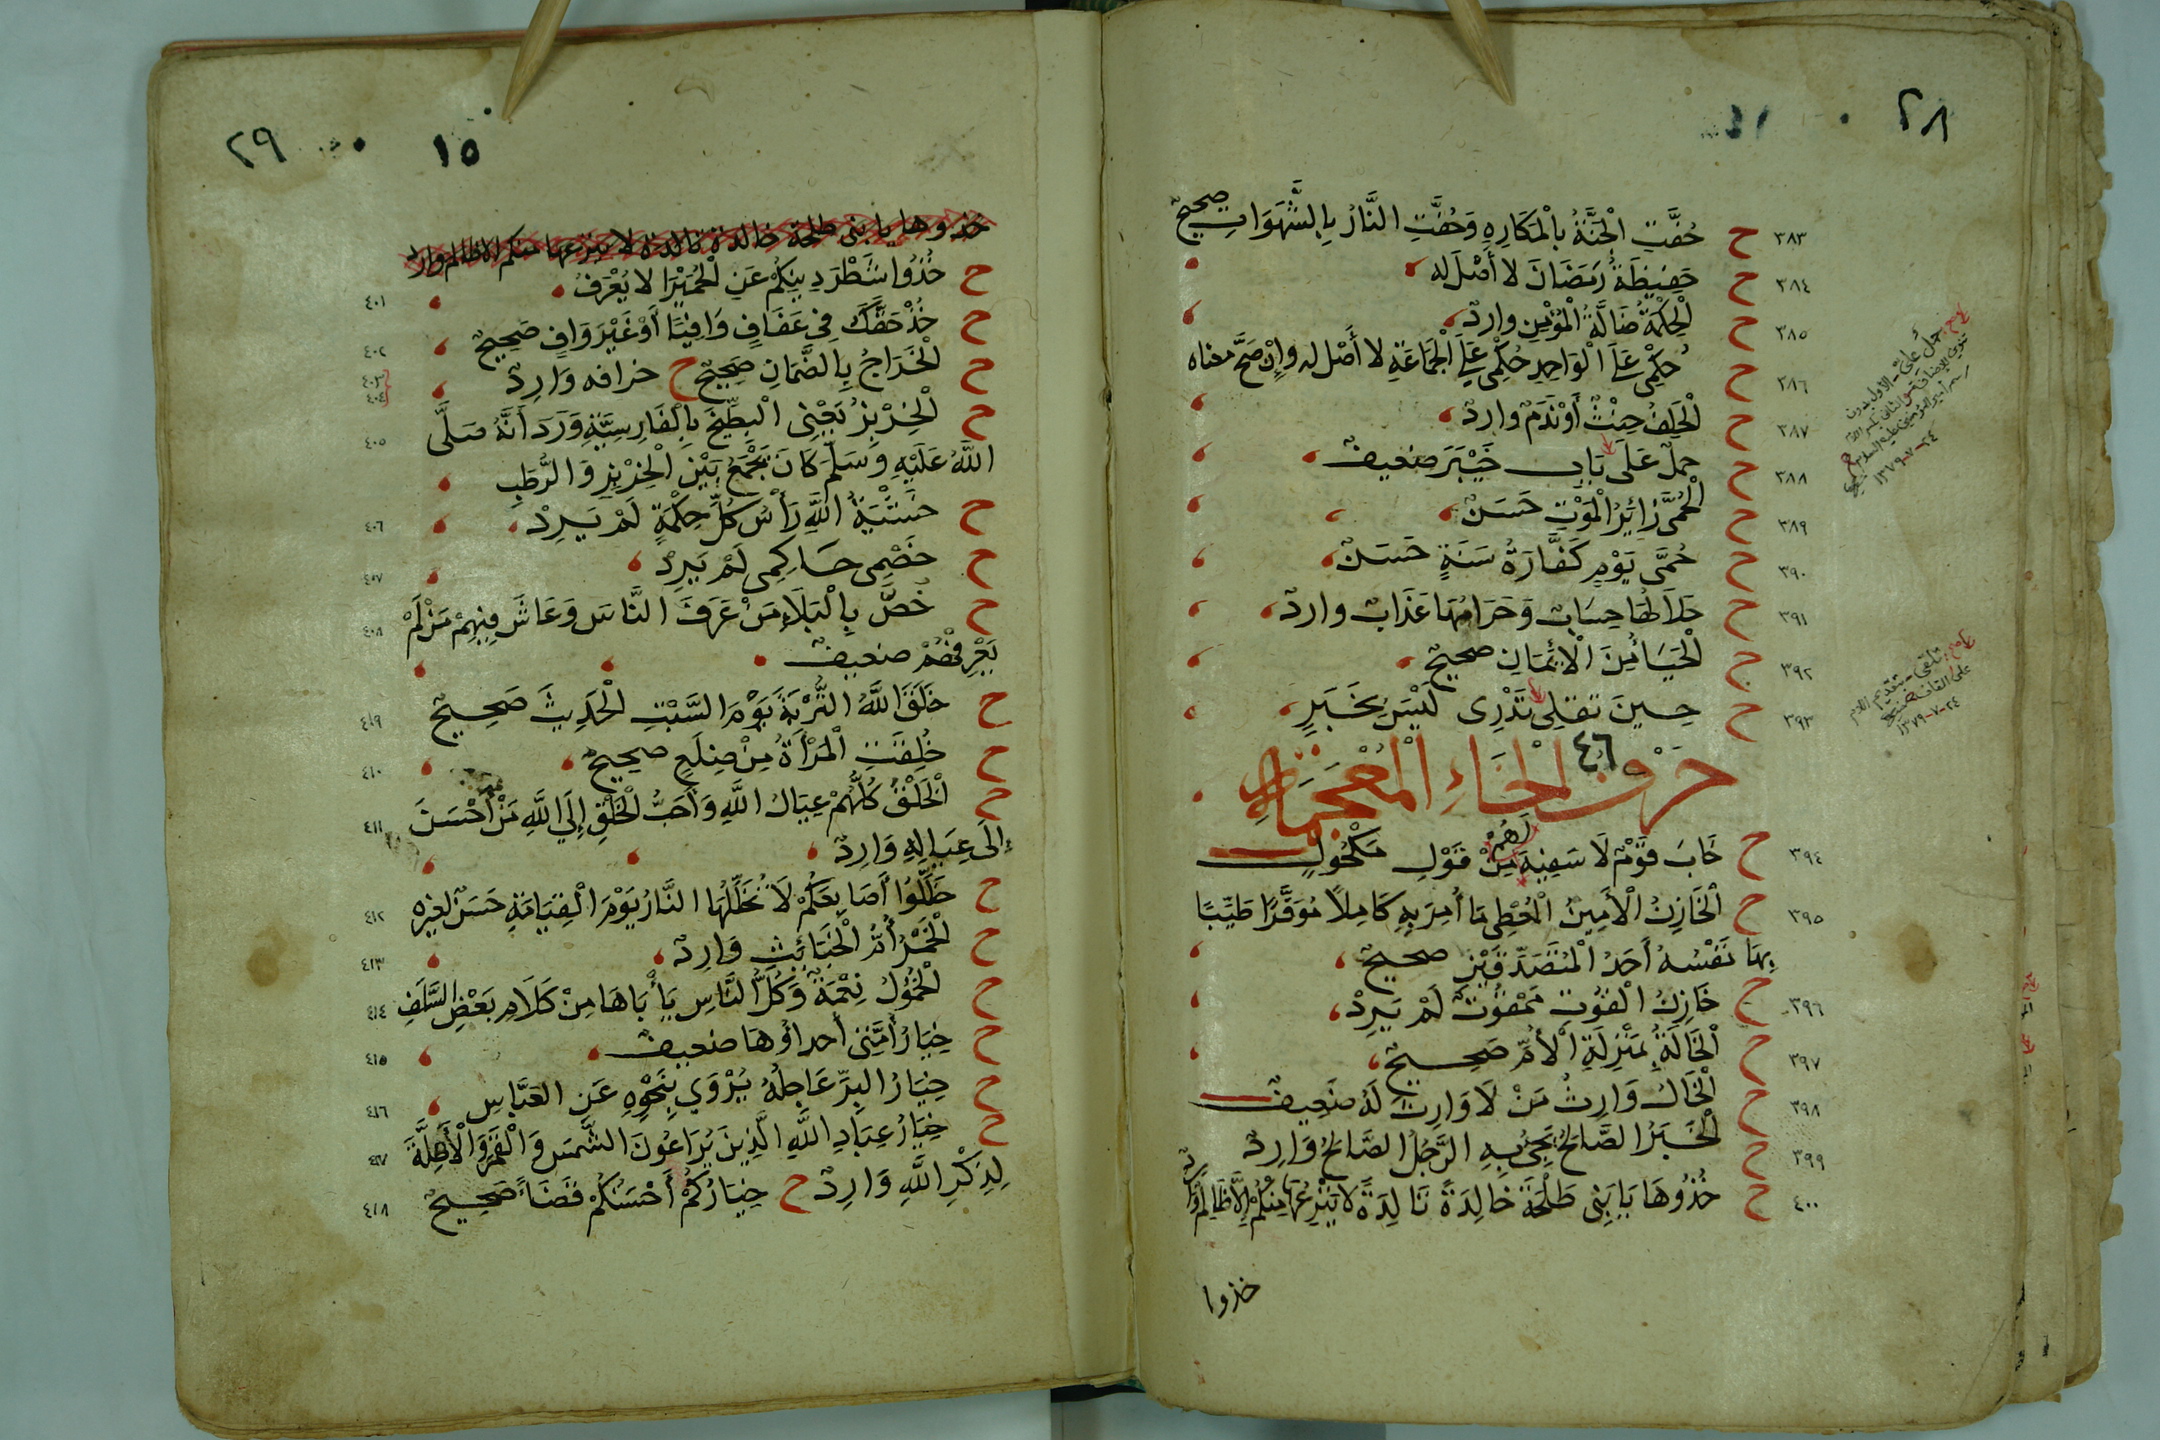 ٢٨
٣٨٣ ح حُفَّتِ الْجَنَّةُ بِالْمَكَارِهِ وَحُفَّتِ النَّارُ بِالشَّهَوَاتِ صحيح
٣٨٤ ح حَفِيظَةُ رَمَضَانَ لا أَصْلَ له
٣٨٥ ح الْحِكْمَةُ ضَالَّةُ الْمُؤْمِنِ وارد
٣٨٦ ح حُكْمِي عَلَى الْوَاحِدِ حُكْمِي عَلَى الْجَمَاعَةِ لا أَصْل له وإِنْ صَحَّ معناه
٣٨٧ ح الْحَلِفُ حِنْثٌ أَوْ نَدَمٌ وارد
٣٨٨ ح حملُ عَلَى بَابِ خَيْبَرَ ضعيف
٣٨٩ ح الْحُمَّى زَائِرُ الْمَوْتِ حَسَن
٣٩٠ ح حُمَّى يَوْمٍ كَفَّارَةُ سَنَةٍ حَسَن
٣٩١ ح حَلَالُهَا حِسَابٌ وَحَرَامُهَا عَذَابٌ وارد
٣٩٢ ح الْحَيَاءُ مِنَ الْأَيْمَانِ صحيح
٣٩٣ ح حِينَ تقلى تَدْرِى لَيْسَ بِخَبَرٍ
حَرْفُ الْخَاءِ الْمُعْجَمَةِ ٤٦
٣٩٤ ح خَابَ قَوْمٌ لَا سَفِيهَ لَهُمْ مِنْ قَوْلِ مَكْحُولٍ
٣٩٥ ح الْخَازِنُ الْأَمِينُ الْمُعْطِى مَا أُمِرَ بِهِ كَامِلًا مُوَفَّرًا طَيِّبًا
بِهَا نَفْسُهُ أَحَدُ الْمُتَصَدِّقَيْنِ صحيح
٣٩٦ ح خَازِنُ الْقُوتِ مَمْقُوتٌ لَمْ يَرِدْ
٣٩٧ ح الْخَالَةُ بِمَنْزِلَةِ الْأُمِّ صَحِيح
٣٩٨ ح الْخَالُ وَارِثُ مَنْ لَا وَارِثَ لَهُ ضَعِيف
٣٩٩ ح الْخَبَرُ الصَّالِحُ يَجِيءُ بِهِ الرَّجُلُ الصَّالِحُ وَارِد
٤٠٠ ح خُذُوهَا يَا بَنِي طَلْحَةَ خَالِدَةً تَالِدَةً لا يَنْزِعُهَا مِنْكُمْ إِلَّا ظَالِمٌ وَارِد
خذوا
حمل علىّ - الاول بدون
١٣٧٩-٧-٢٤
تلقى - بتقديم اللام
على القاف
١٣٧٩-٧-٢٤
٢٩
١٥
خذوها يا بنى طلحة خالدة تالدة لا ينزعها منكم الا ظالم وارد
٤٠١ ح خُذُوا شَطْرَ دِينِكُمْ عَنِ الْحُمَيْرَا لا يُعْرَفُ
٤٠٢ ح خُذْ حَقَّكَ فِي عَفَافٍ وَافِيًا أَوْ غَيْرَ وَافٍ صَحِيح
٤٠٣ ٤٠٤ ح الْخَرَاجُ بِالضَّمَانِ صَحِيح ح خرافه وَارِد
٤٠٥ ح الْخِرْبِزُ يَعْنِى الْبِطِّيخَ بِالْفَارِسِيَّةِ وَرَدَ أَنَّهُ صَلَّى
اللَّهُ عَلَيْهِ وَسَلَّمَ كَانَ يَجْمَعُ بَيْنَ الْخِرْبِزِ وَالرُّطَبِ
٤٠٦ ح خَشْيَةُ اللَّهِ رَأْسُ كُلِّ حِكْمَةٍ لَمْ يَرِدْ
٤٠٧ ح خَصْمِى حَاكِمِى لَمْ يَرِدْ
٤٠٨ ح خُصَّ بِالْبَلَاءِ مَنْ عَرَفَ النَّاسَ وَعَاشَ فِيهِمْ مَنْ لَمْ
يَعْرِفْهُمْ ضعيف
٤٠٩ ح خَلَقَ اللَّهُ التُّرْبَةَ يَوْمَ السَّبْتِ الْحَدِيثَ صَحِيح
٤١٠ ح خُلِقَتِ الْمَرْأَةُ مِنْ ضِلَعٍ صحيح
٤١١ ح الْخَلْقُ كُلُّهُمْ عِيَالُ اللَّهِ وَأَحَبُّ الْخَلْقِ إِلَى اللَّهِ مَنْ أَحْسَنَ
إِلَى عِيَالِهِ وَارِد
٤١٢ ح خَلِّلُوا أَصَابِعَكُمْ لَا تُخَلِّلُهَا النَّارُ يَوْمَ الْقِيَامَةِ حَسَن لغيره
٤١٣ ح الْخَمْرُ أُمُّ الْخَبَائِثِ وَارِد
٤١٤ ح الْخُمُولُ نِعْمَةٌ وَكُلُّ النَّاسِ يَأْبَاهَا مِنْ كَلَامِ بَعْضِ السَّلَفِ
٤١٥ ح خِيَارُ أُمَّتِي أحداؤُهَا ضعيف
٤١٦ ح خِيَارُ الْبِرِّ عَاجِلُهُ يُرْوَى بِنَحْوِهِ عَنِ العَبَّاسِ
٤١٧ ح خِيَارُ عِبَادِ اللَّهِ الَّذِينَ يُرَاعُونَ الشَّمْسَ وَالْقَمَرَ وَالْأَهِلَّةَ
٤١٨ لِذِكْرِ اللَّهِ وَارِد ح خِيَارُكُمْ أَحْسَنُكُمْ قَضَاءً صَحِيح